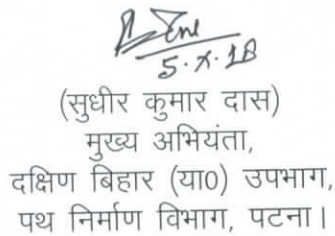 5.X.18
(सुधीर कुमार दास)
मुख्य अभियंता,
दक्षिण बिहार (या0) उपभाग,
पथ निर्माण विभाग, पटना।